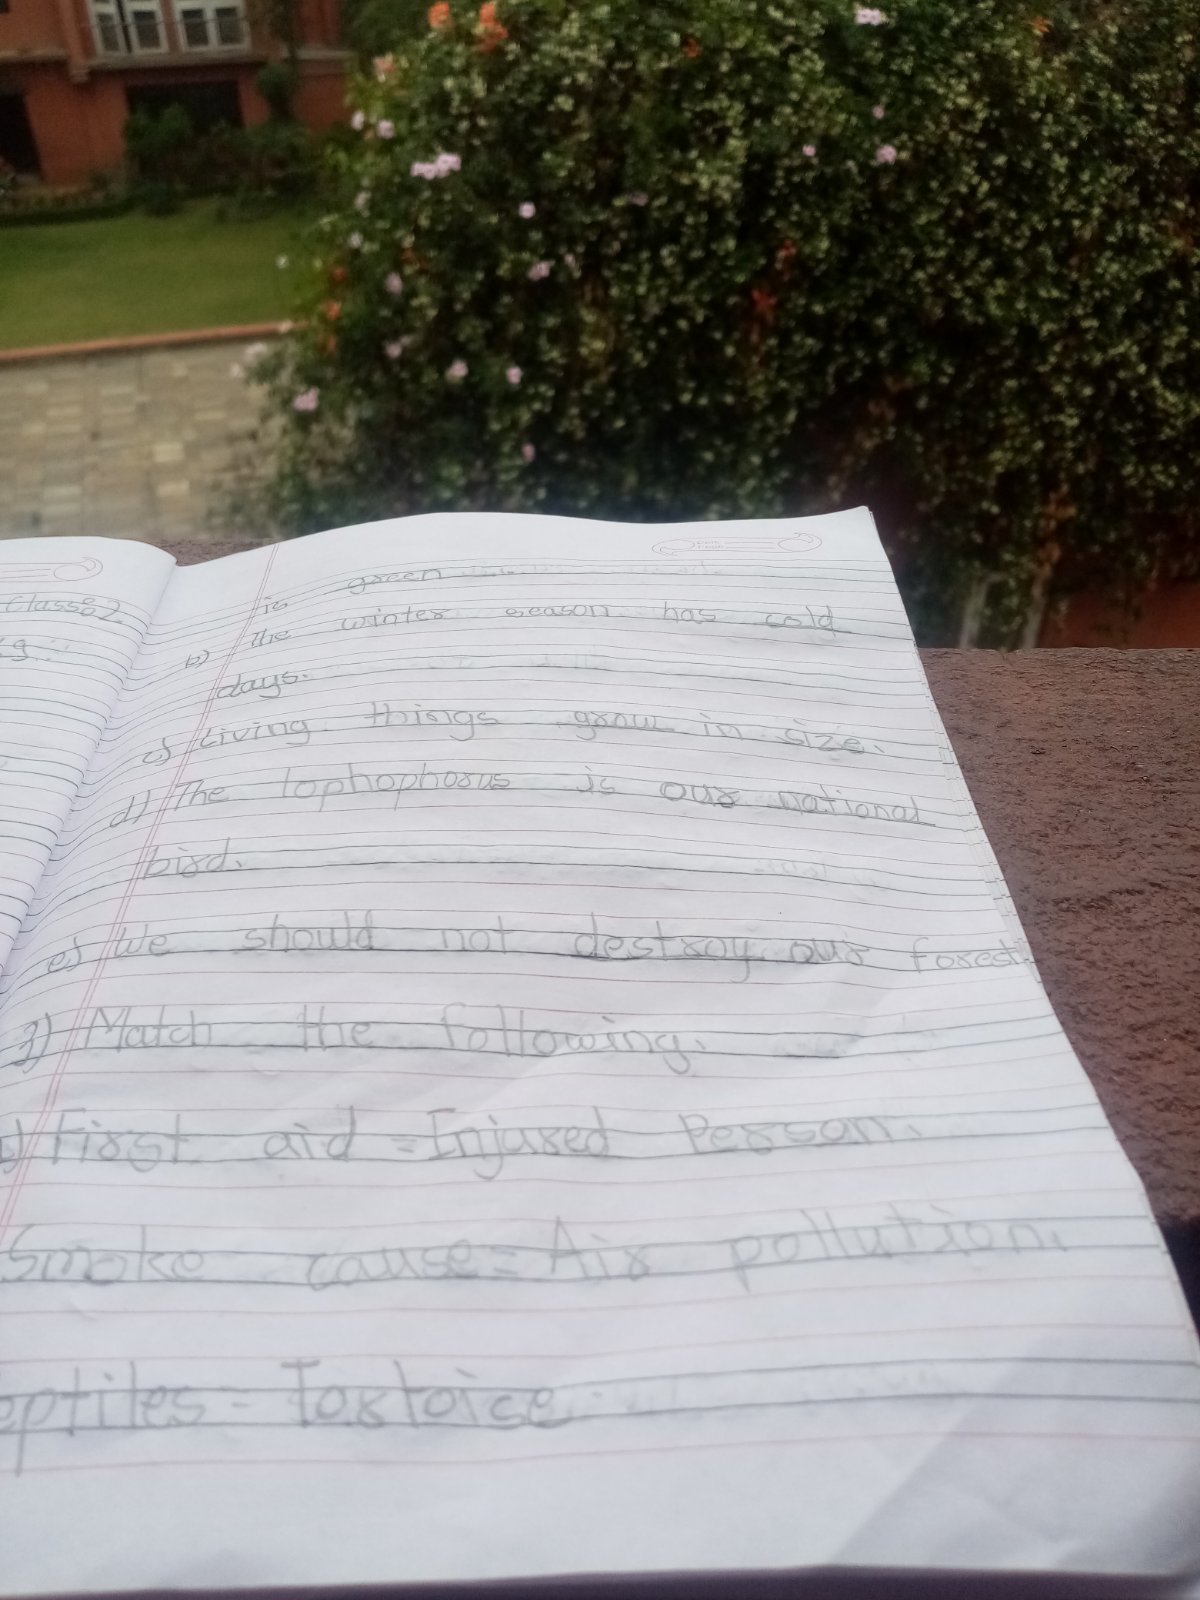 Class: 2
is green
b) The winter season has cold
days.
c) Living things grow in size.
d) The lophophorus is our national
bird.
e) We should not destroy our forest
3) Match the following.
First aid = Injured Person.
Smoke cause = Air pollution.
eptiles = Tortoise